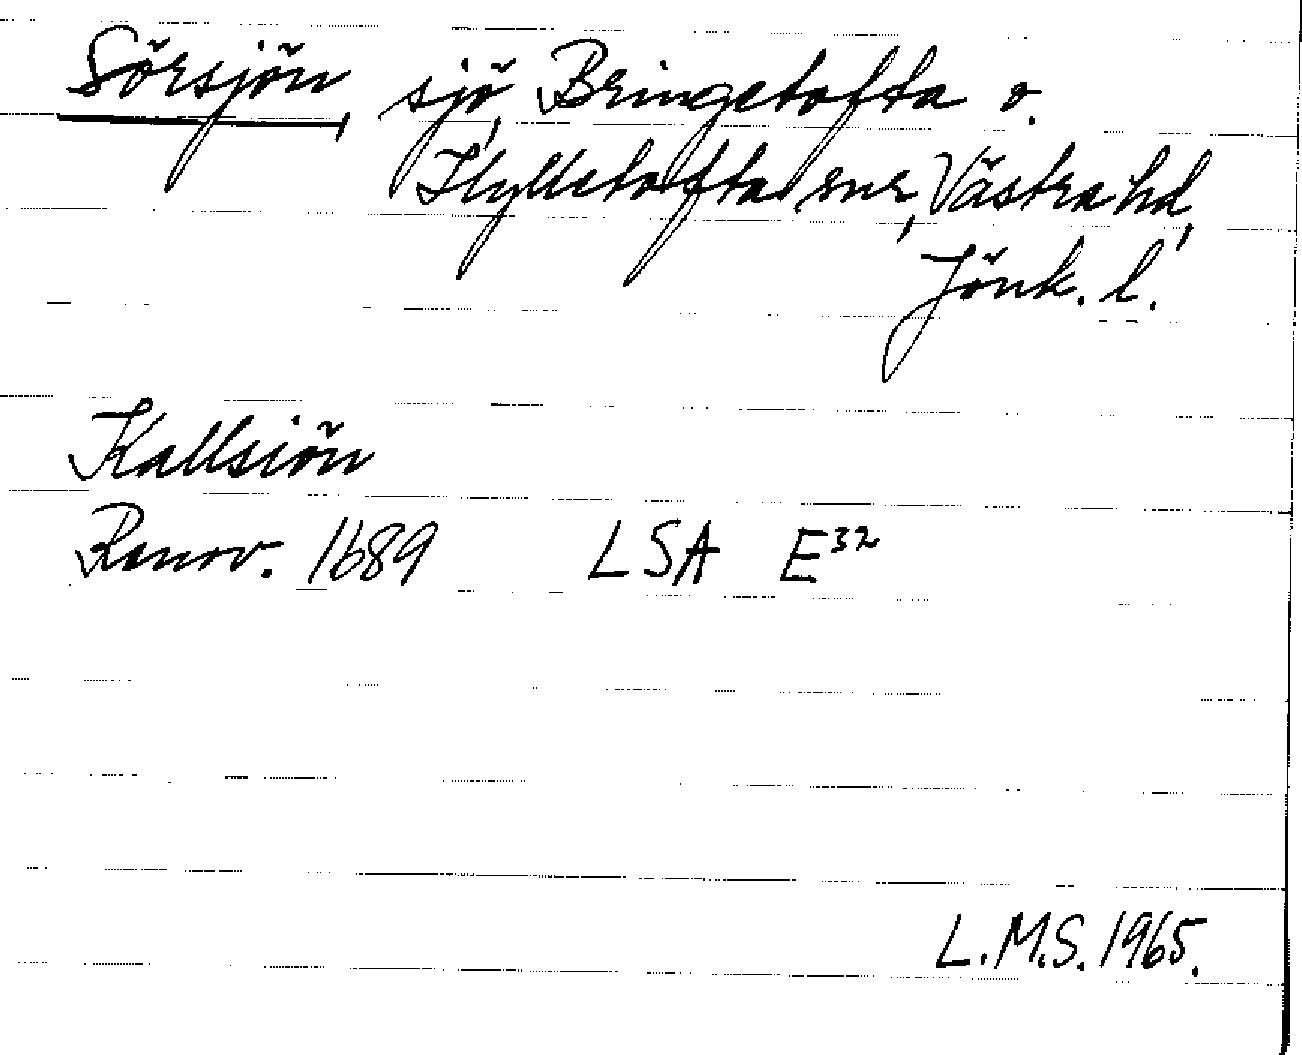 Sörsjön sjö, Bringetofta o.
Hylletofta snr, Västra hd,
Jönk. l.
Kallsiön
Renov. 1689 LSA E³²
L.M.S. 1965.